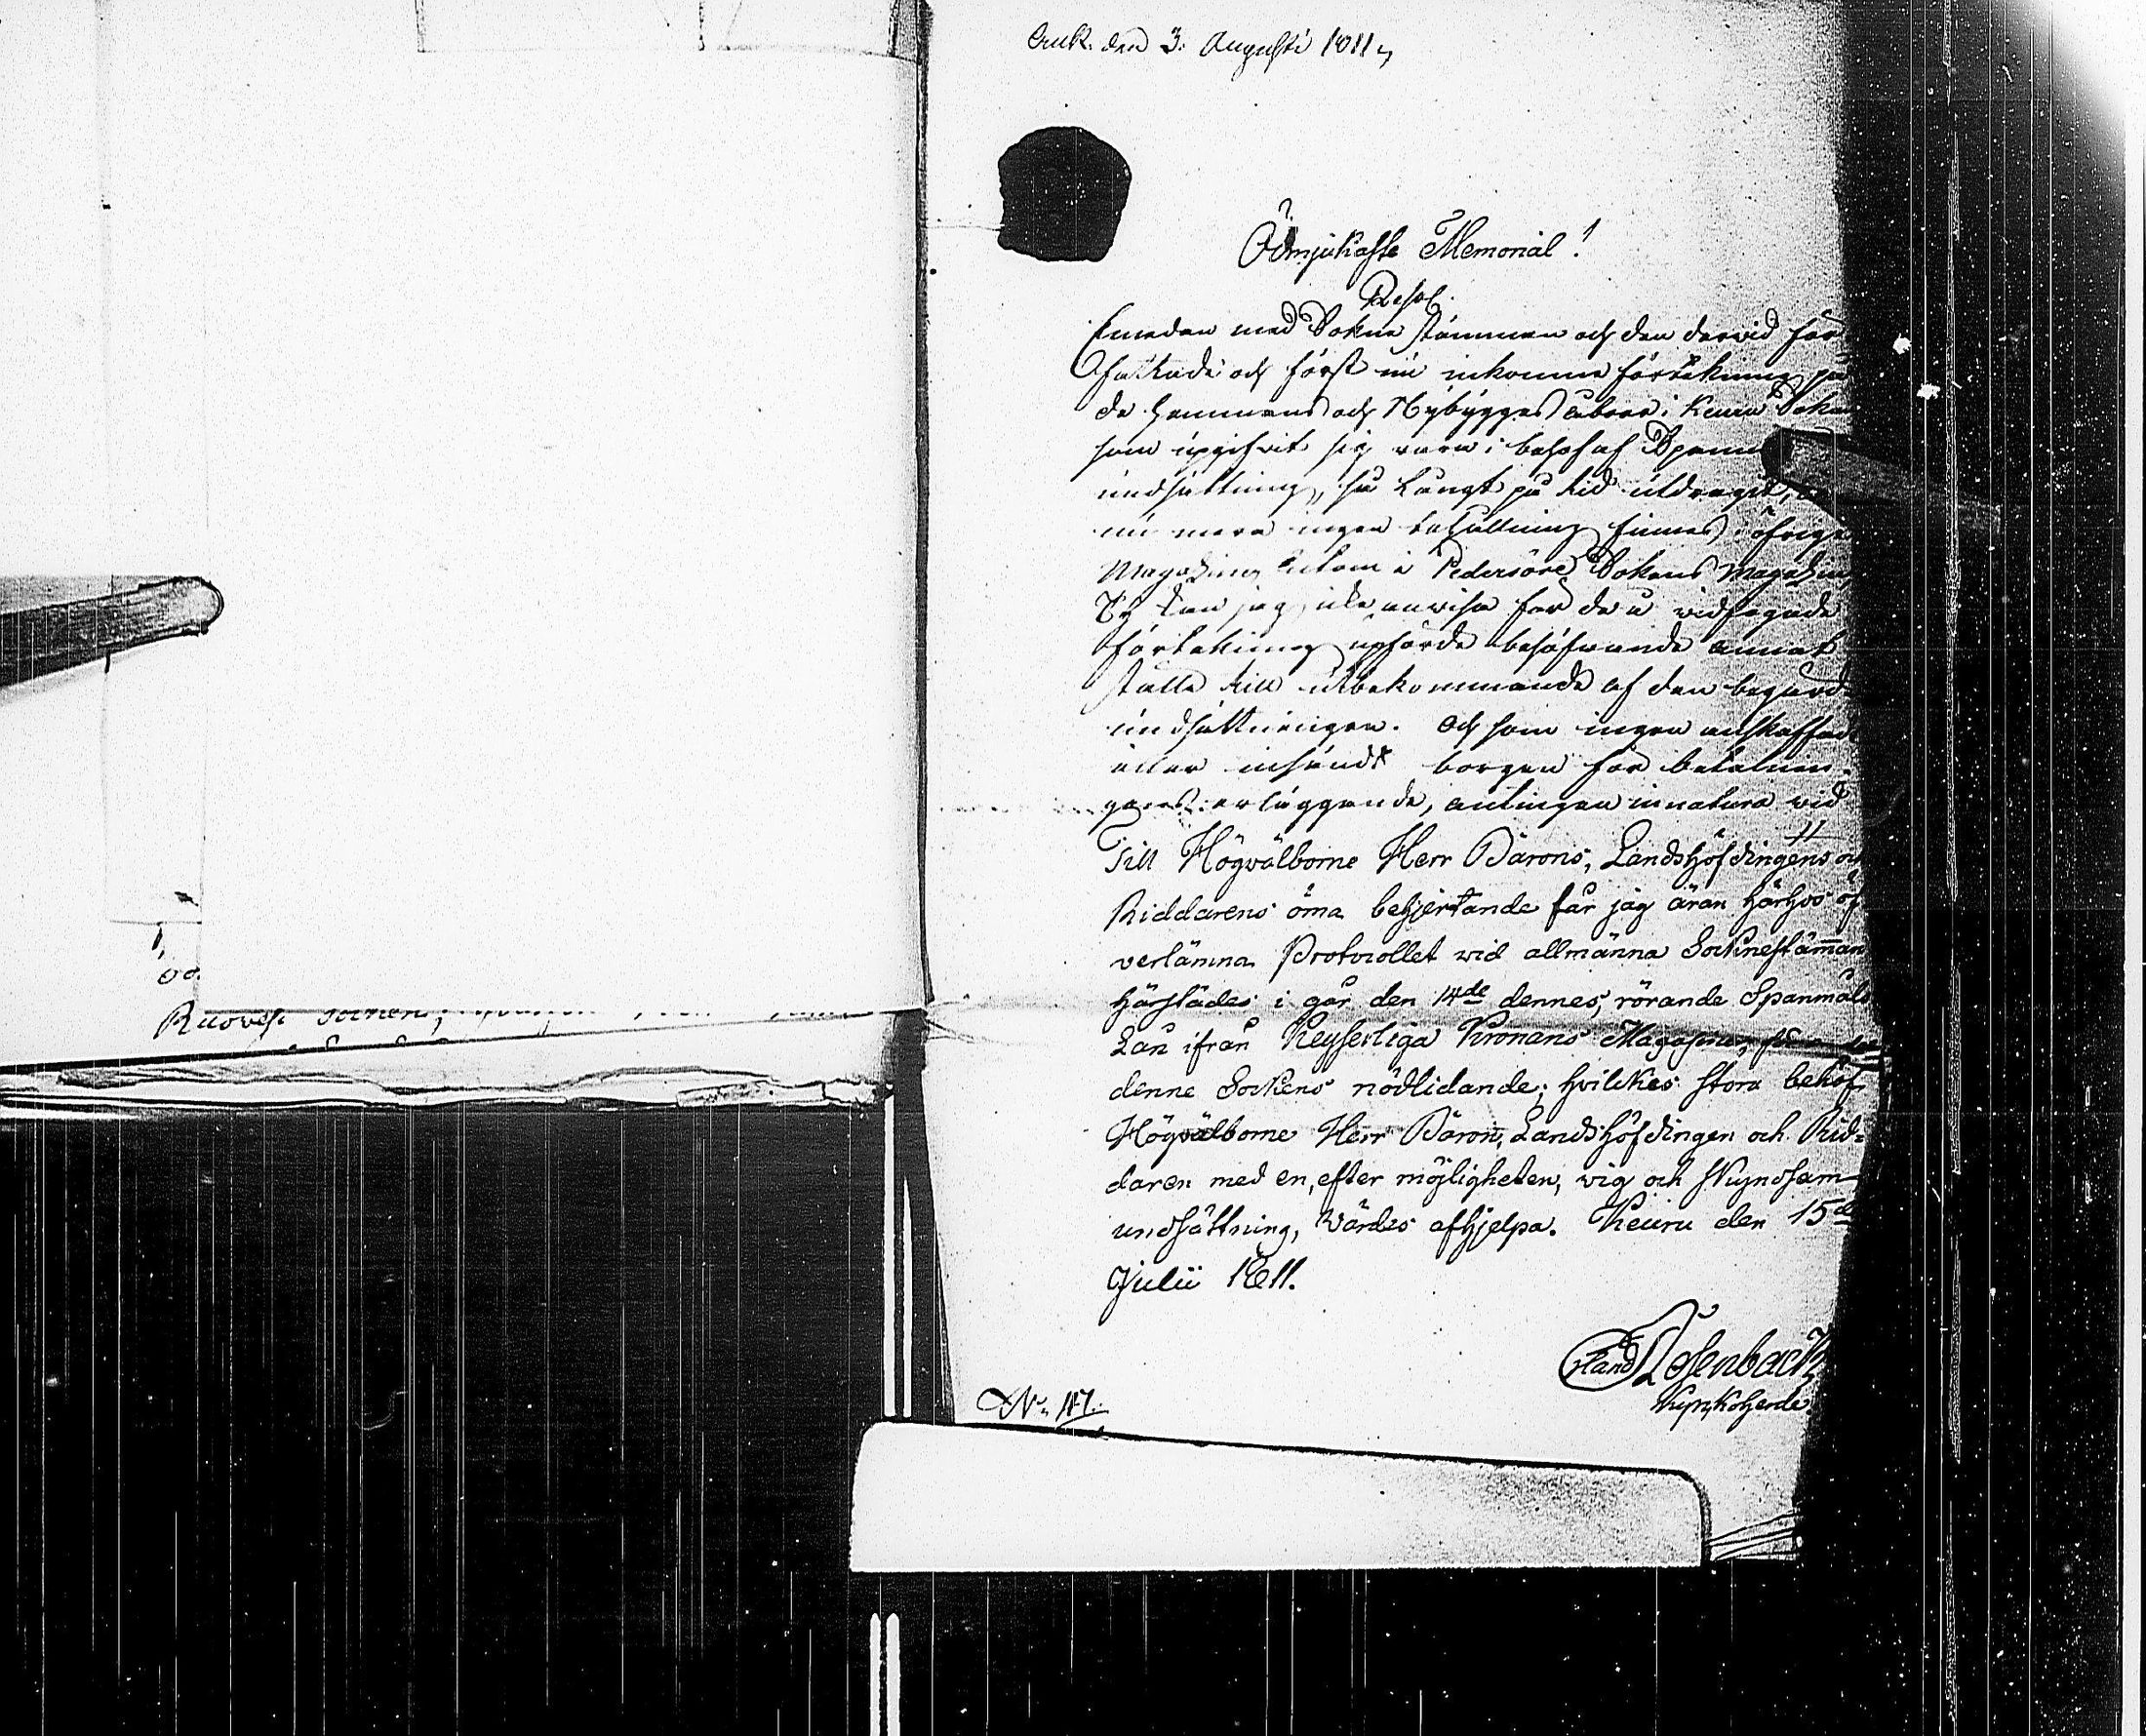 den 3. Augusti 1811
Ödmjukaste Memorial!
Resol.
Emedan med Sokne stämman och den dervid för
fattade och först nu inkomne förtekning på
de hemmans och Nybygges åboer i Keuru Sokn
som upgifvit sig vara i behof af Spanm
undsättning, så långt på tid utdragit,
nu mera ingen behållning finnes i öfrige
Magaziner utom i Pedersöre Sokens Magazin
Ty kan jag icke anvisa för de å vidfogade
förtekning upförde behöfvande annat
ställe till utbekommande af den begärd
undsättningen. Och som ingen anskaffad
eller insändt borgen för betalnin-
gens erläggande, antingen in natura vid
Till Högvälborne Herr Barons, Landshöfdingens och
Riddarens öma behjertande får jag äran härhos öf
verlämna Protocollet vid allmänna Socknestämman
härstädes i går den 14de dennes, rörande Spanmåls
Lån ifrån Keyserliga Kronans Magasin,
denne Sockens nödlidande; hvilckes stora behof,
Högvälborne Herr Baron, Landshöfdingen och Rid=
daren med en, efter möjligheten, vig och skyndsam
undsättning, Värdes afhjelpa. Keuru den 15de
Julii 1811.
Erland Rosenback
Kyrkoherde.
N. 117.
1,
Ruovesi Socken,